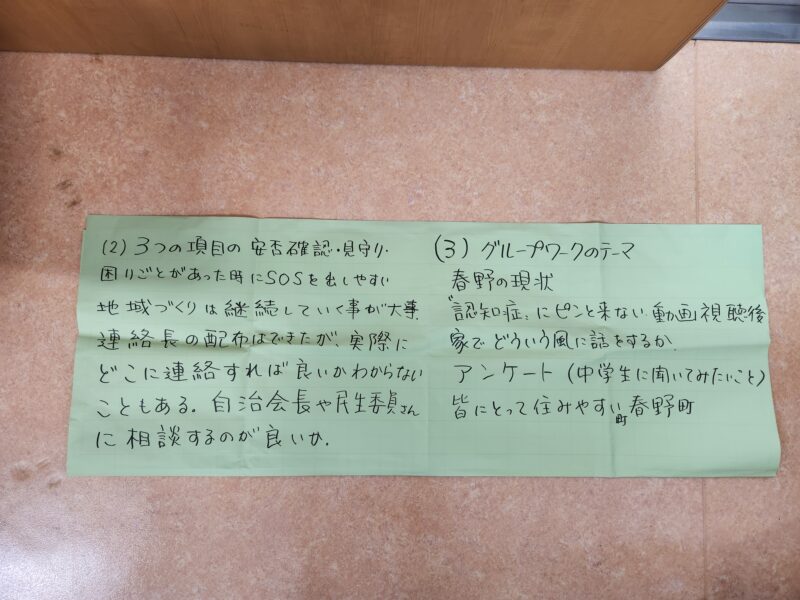 (2) 3つの項目の 安否確認・見守り・
困りごとがあった時にSOSを出しやすい
地域づくりは継続していく事が大事
連絡長の配布はできたが、実際に
どこに連絡すれば良いかわからない
こともある。自治会長や民生委員さん
に相談するのが良いか.
(3) グループワークのテーマ
春野の現状
『認知症』にピンと来ない 動画視聴後
家でどういう風に話をするか.
アンケート (中学生に聞いてみたいこと)
皆にとって住みやすい町春野町